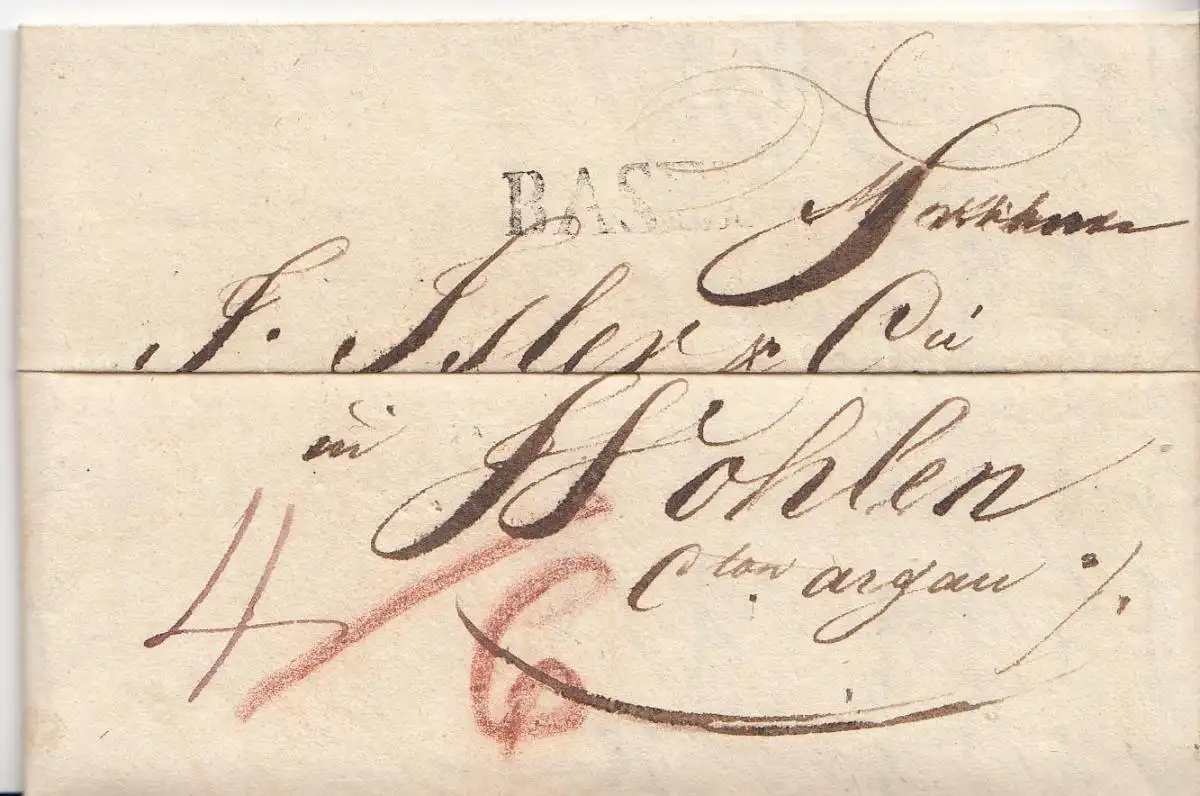 BASEL
J. Isler & Cie
in Wohlen
Cton argau ./.
4/6